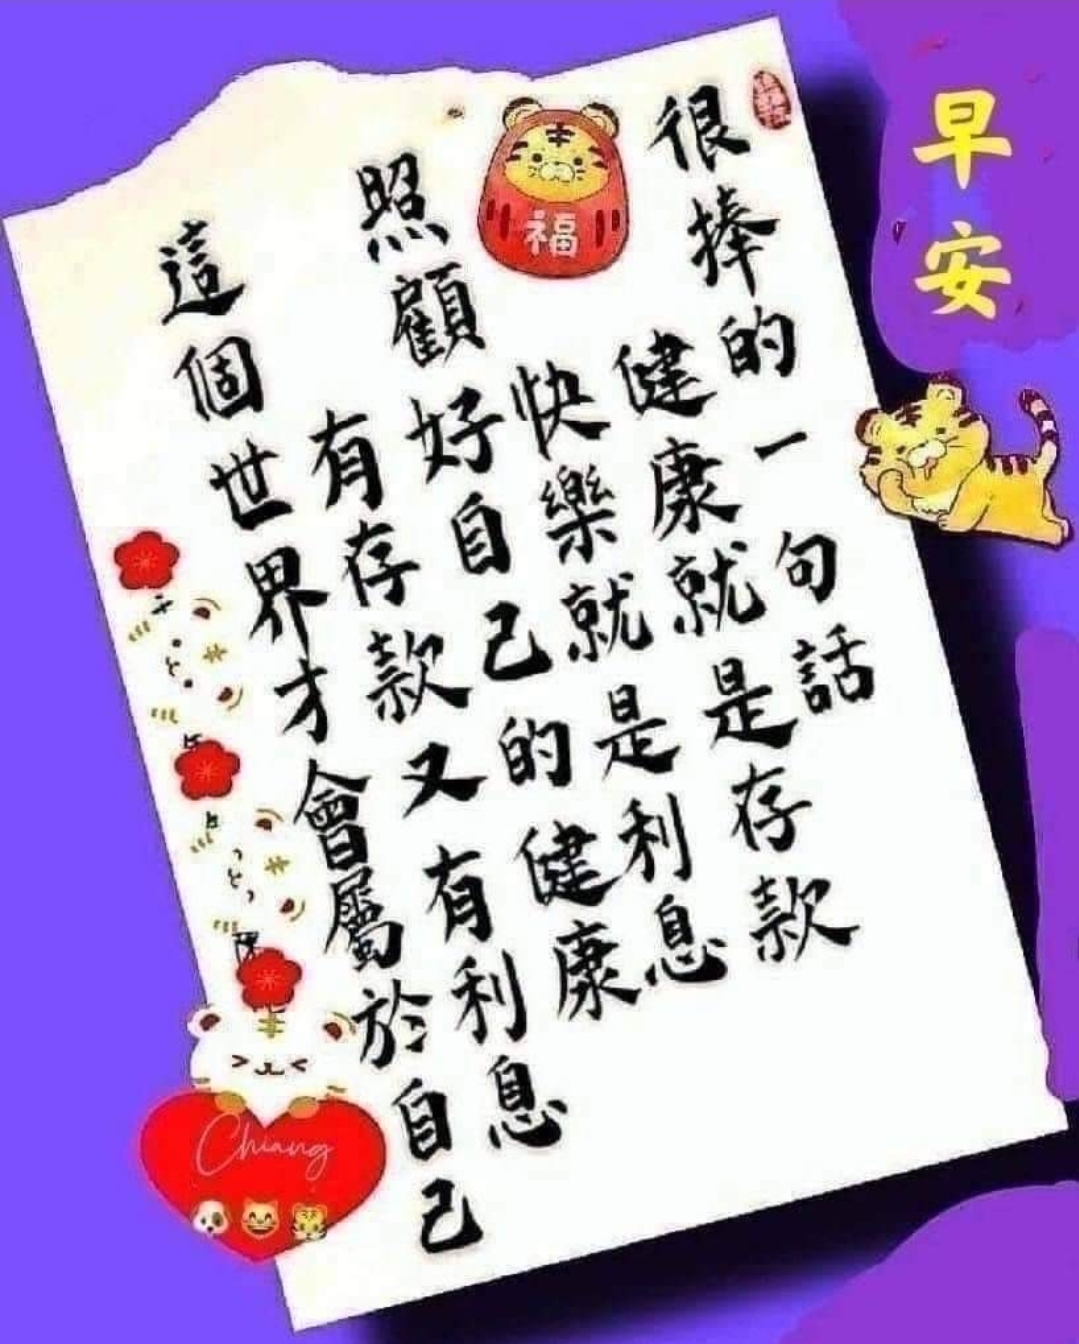 早安
很捧的一句話
健康就是存款
快樂就是利息
照顧好自己的健康
有存款又有利息
這個世界才會屬於自己
福
Chiang